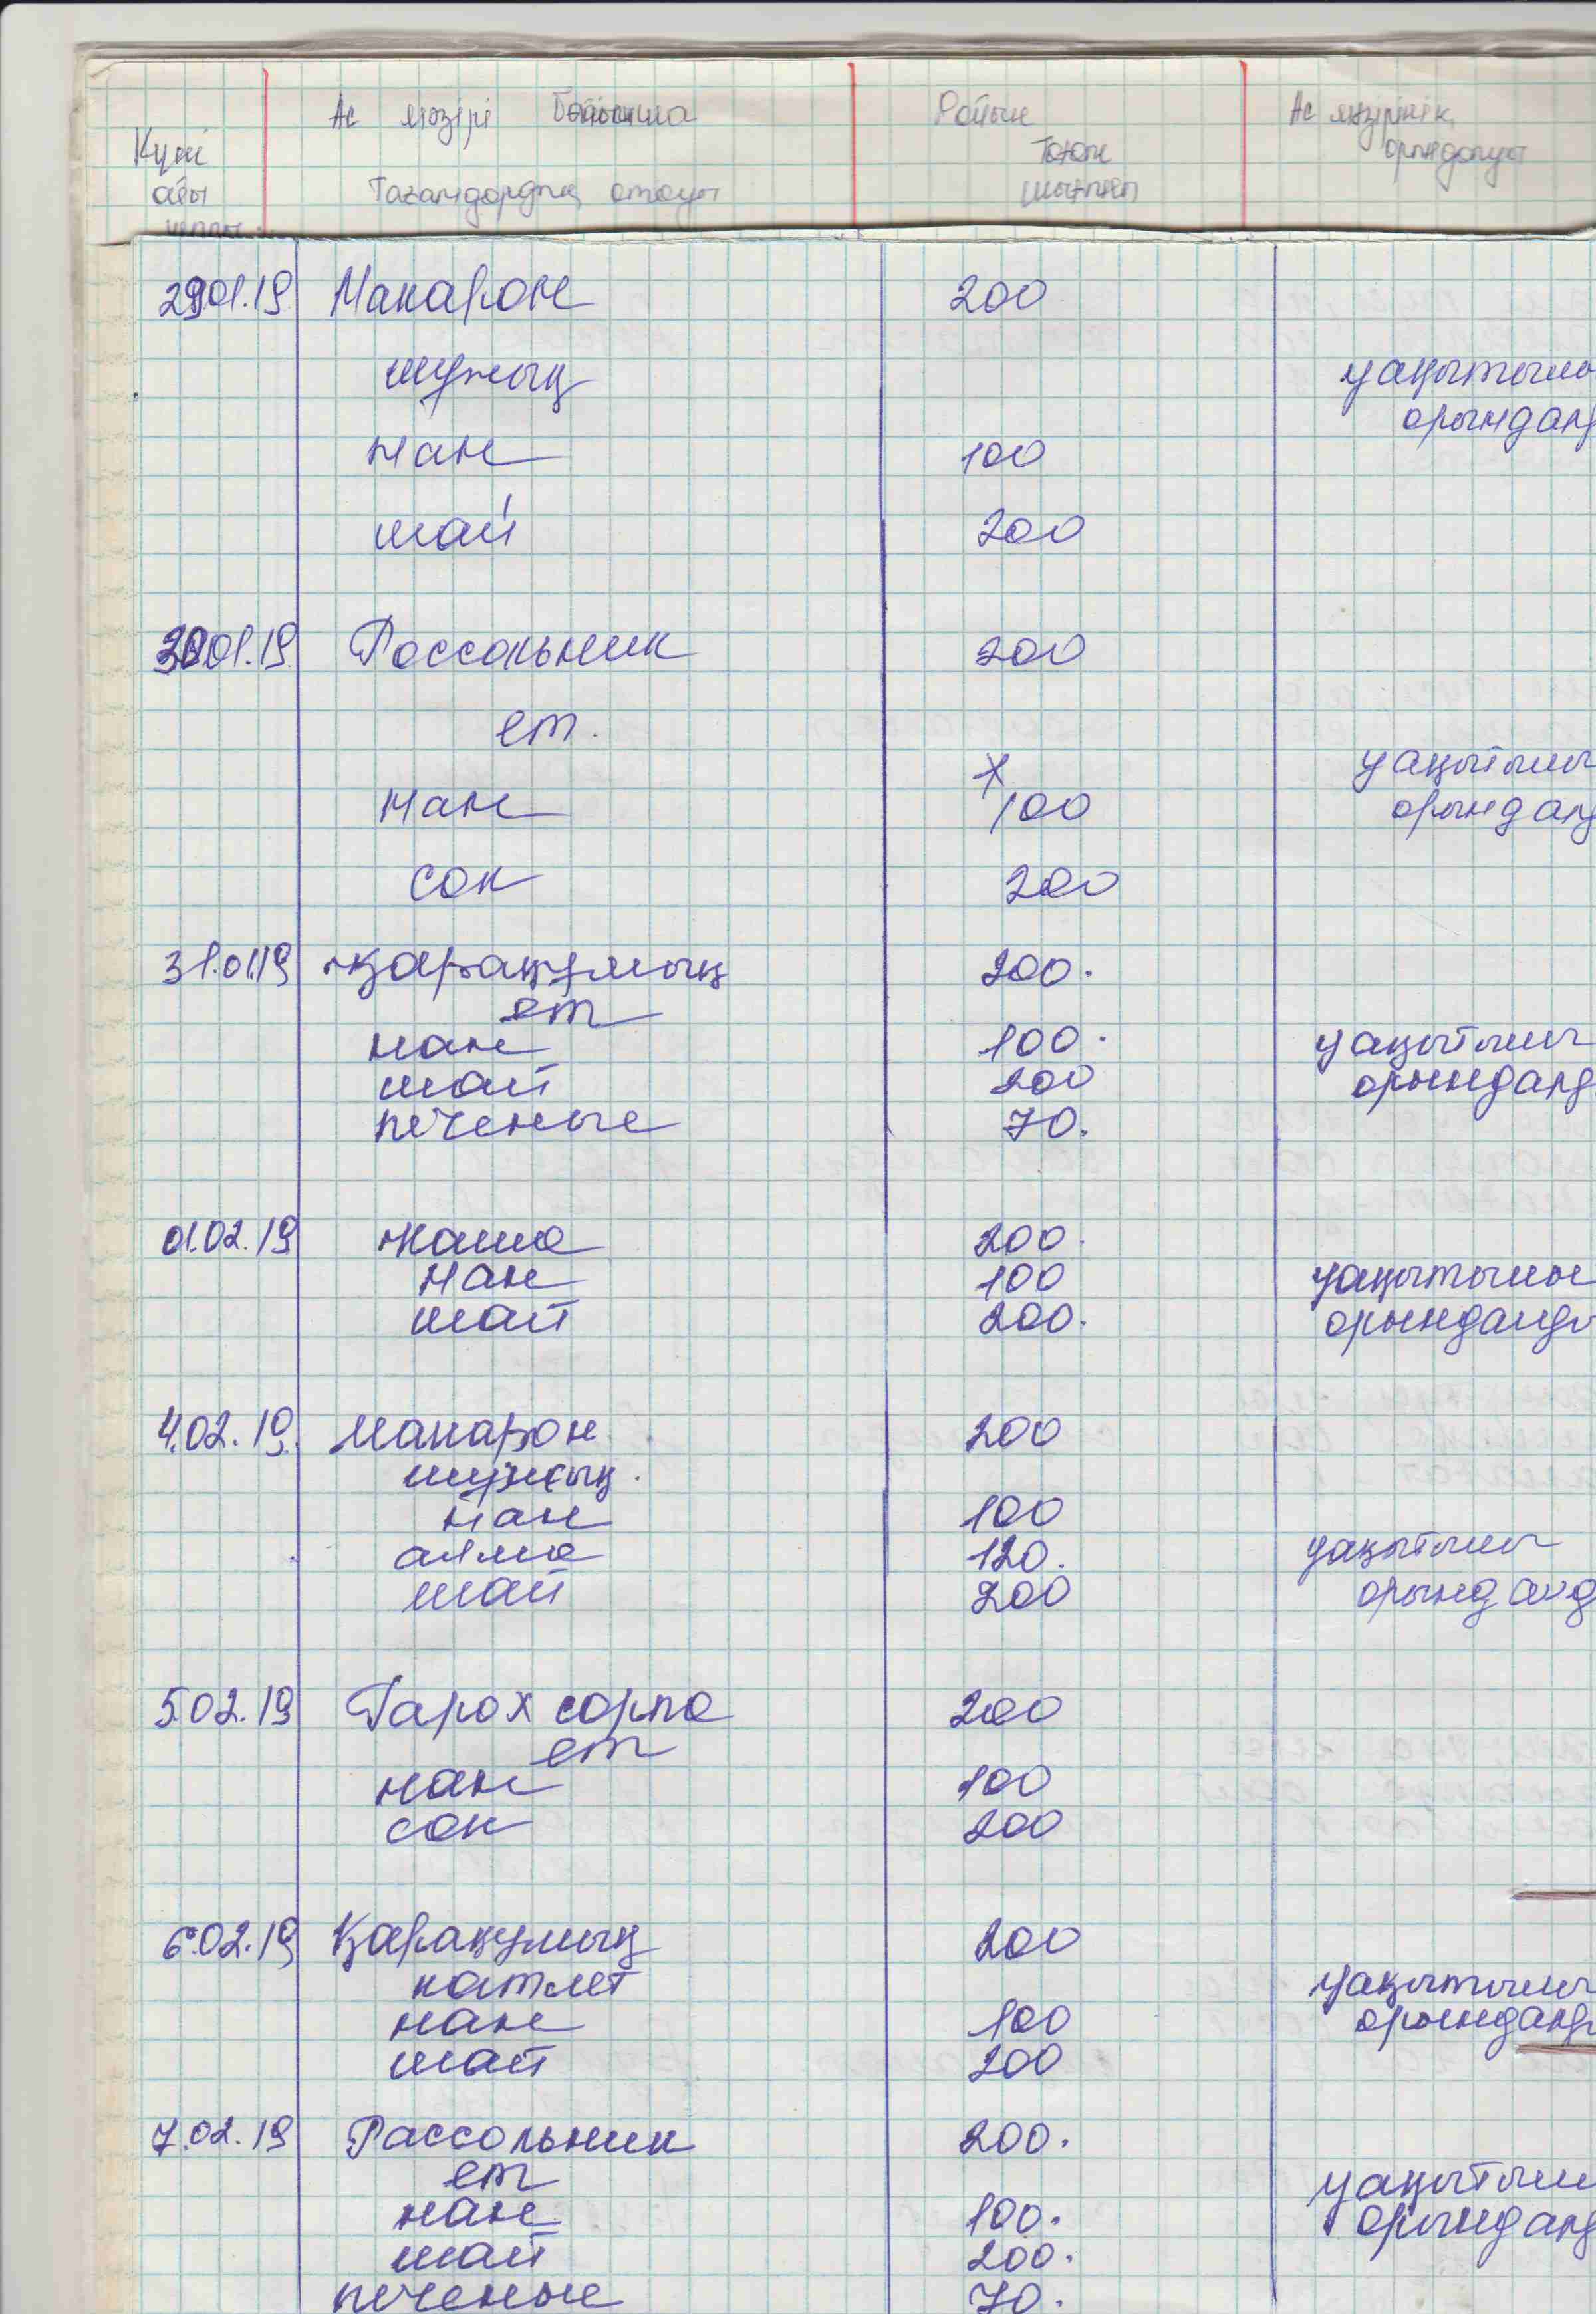 Ас мәзірі бойынша Дайын Ас мәзірінің
Күні тағам орындалуы
айы Тағамдардың атауы шығымы
29.01.19 Макарон 200
шұжық уақытылы
орындалд
нан 100
шай 200
30.01.19 Россольник 200
ет.
уақытылы
нан 100 орындалд
сок 200
31.01.19 қарақұмық 200.
ет
нан 100. уақытылы
шай 200 орындалд
печенье 70.
01.02.19 каша 200.
нан 100 уақытылы
шай 200. орындалды
4.02.19. макарон 200
шұжық.
нан 100
алма 120. уақытылы
шай 200 орындалд
5.02.19 Гарох сорпа 200
ет
нан 100
сок 200
6.02.19 Қарақұмық 200
котлет уақытылы
нан 100 орындалд
шай 200
7.02.19 Рассольник 200.
ет уақытылы
нан 100. орындалд
шай 200.
печенье 70.